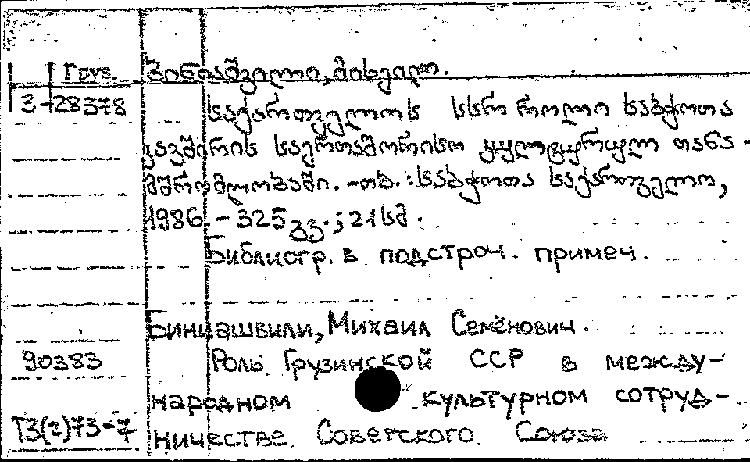 Груз. ბინიაშვილი, მიხეილ.
3-28378 საქართველოს სსრ როლი საბჭოთა
კავშირის საერთაშორისო კულტურულ თანა-
მშრომლობაში. -თბ.: საბჭოთა საქართველო,
1986. - 325 გვ.; 21 სმ.
Библиогр. в подстроч. примеч.
Биниашвили, Михаил Семёнович.
90383 Роль Грузинской ССР в между-
народном культурном сотруд-
Т3(2)73-7 ничестве Советского Союза